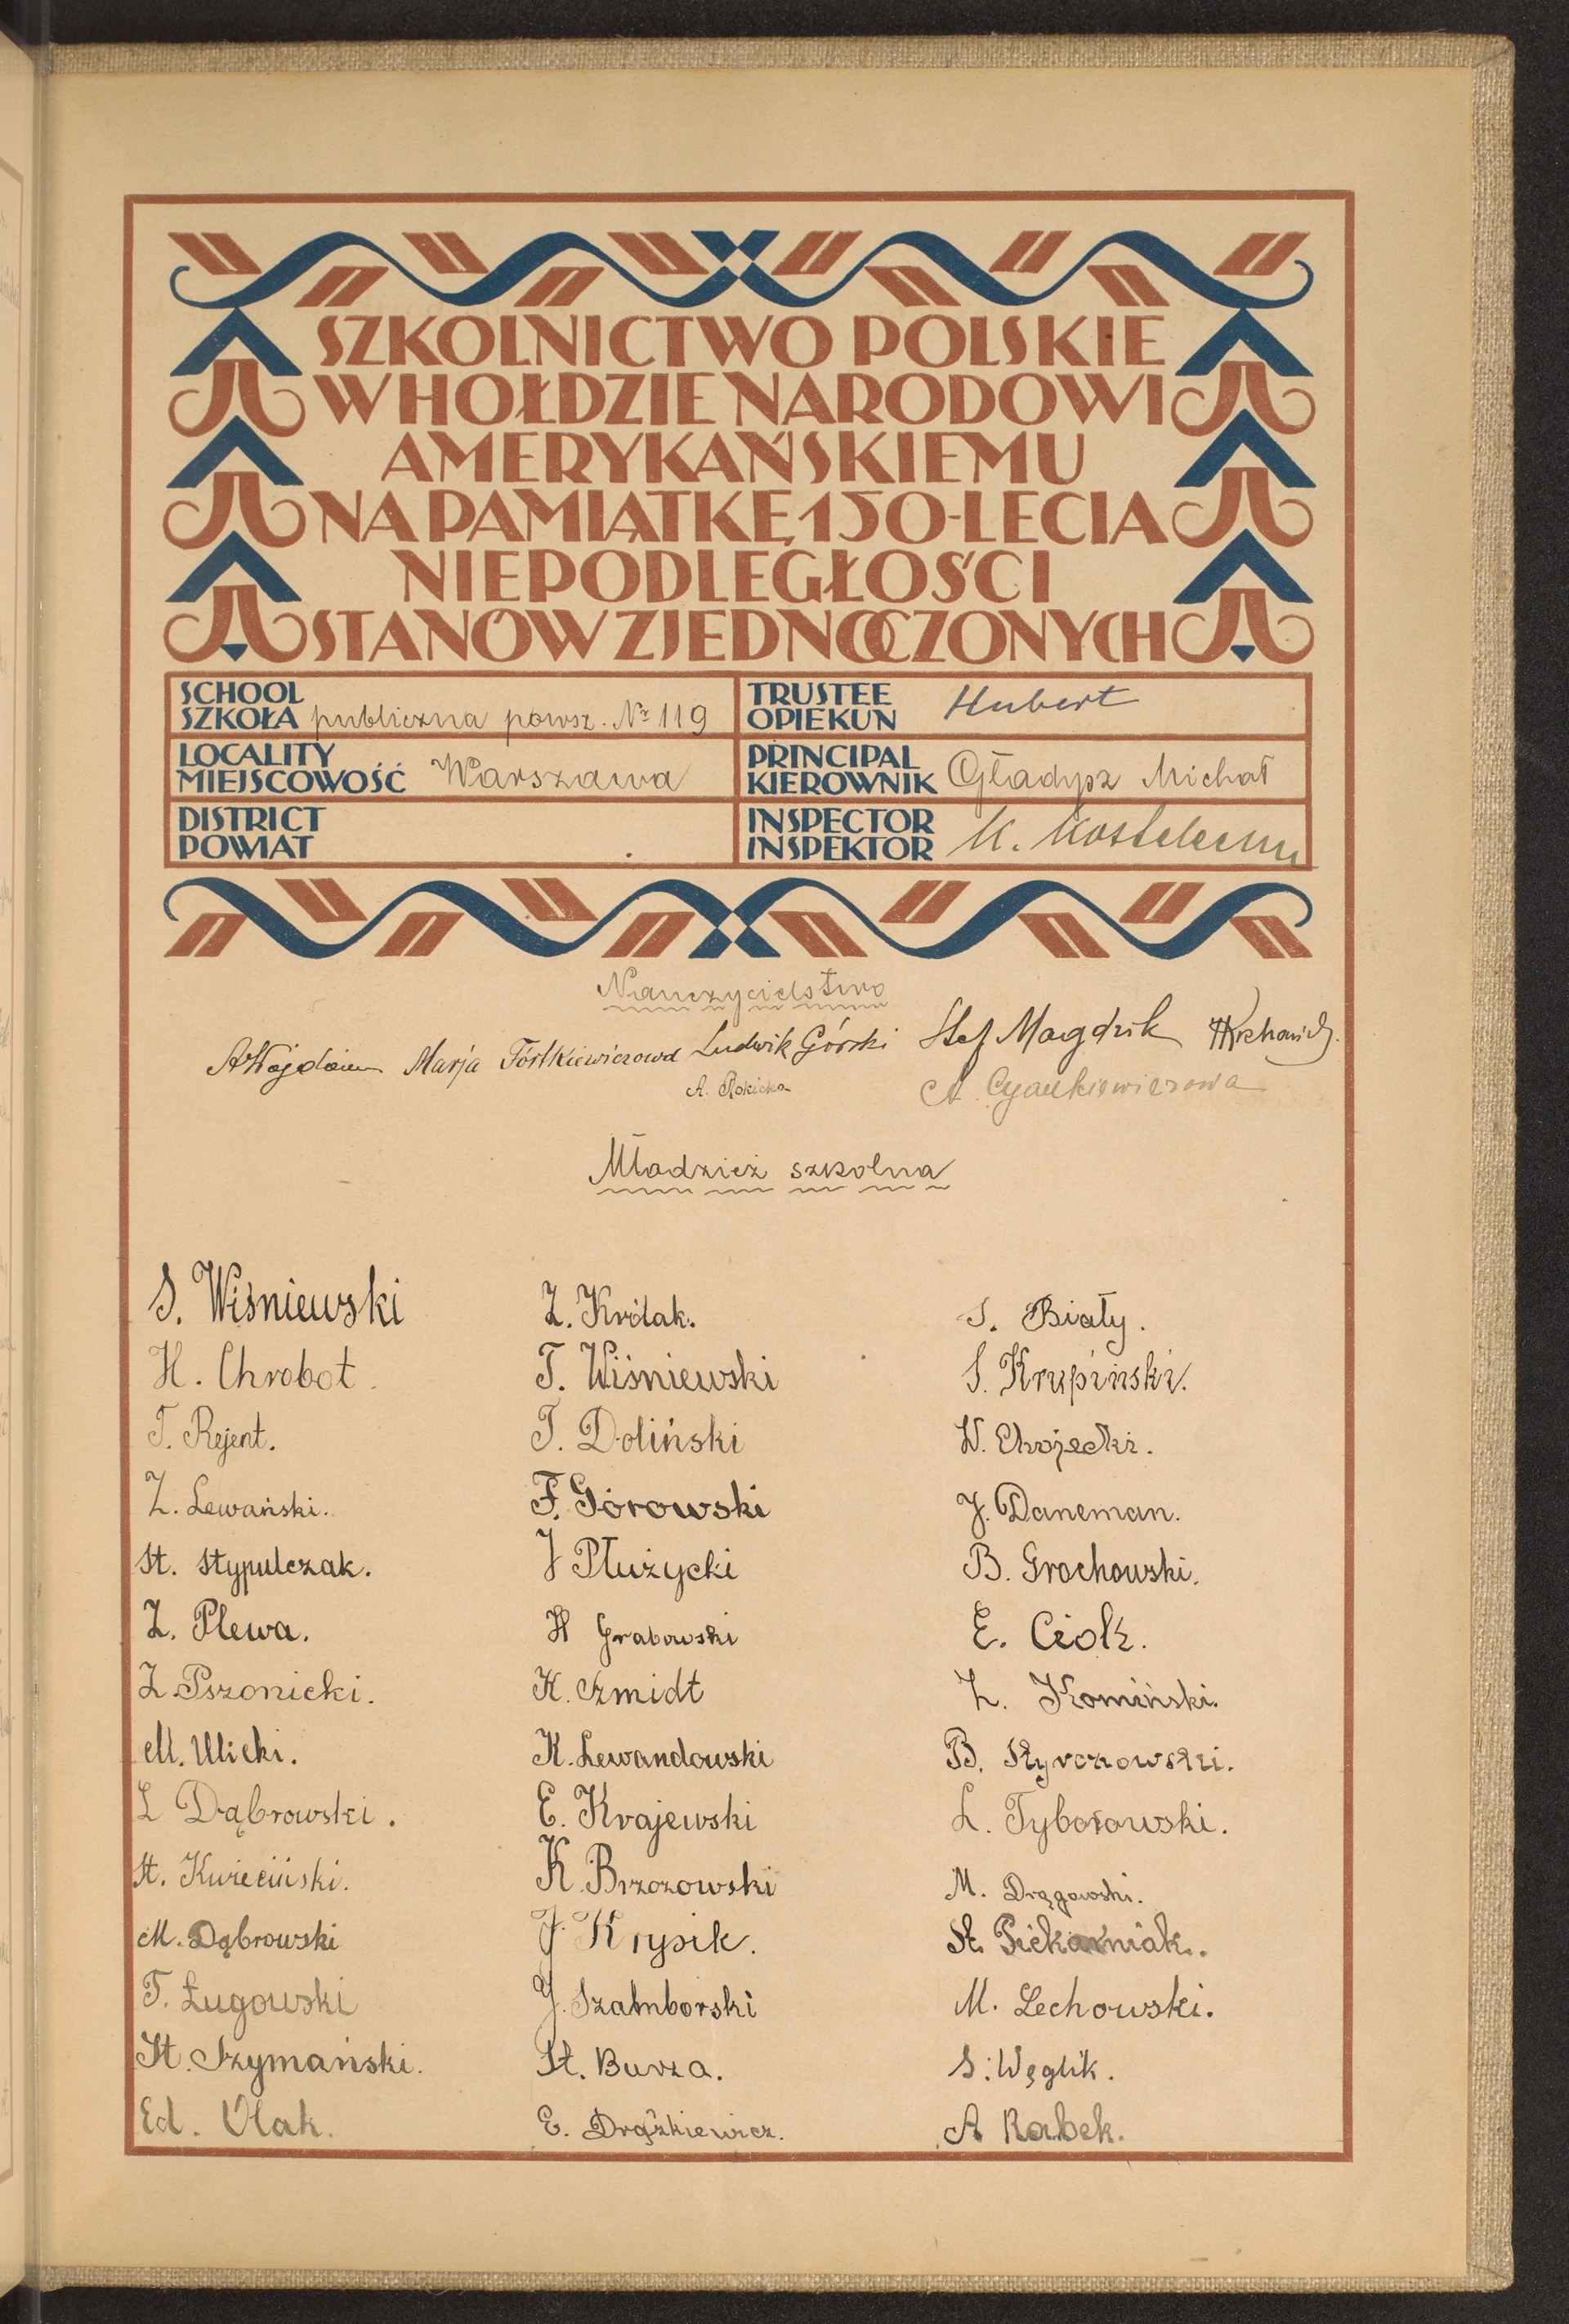 SZKOLNICTWO POLSKIE
W HOŁDZIE NARODOWI
AMERYKAŃSKIEMU
NA PAMIĄTKĘ 150-LECIA
NIEPODLEGŁOŚCI
STANÓW ZJEDNOCZONYCH
SCHOOL
SZKOŁA publiczna powsz. Nr 119
TRUSTEE
OPIEKUN Hubert
LOCALITY
MIEJSCOWOŚĆ Warszawa
PRINCIPAL
KIEROWNIK Gładysz Michał
DISTRICT
POWIAT
INSPECTOR
INSPEKTOR K.
Nauczycielstwo
Marja Ludwik Górski Stef Magdzik
A. Rokicka A. Cyankiewiczowa
Młodzież szkolna
S. Wiśniewski
H. Chrobot
T. Rejent.
Z. Lewański.
St. Stypulczak.
Z. Plewa.
Z. Pszonicki.
M. Ulicki.
L Dąbrowski.
St. Kwieciński.
M. Dąbrowski
T. Ługowski
St. Szymański.
Ed. Olak.
Z. Królak.
T. Wiśniewski
T. Doliński
F. Górowski
J Płużycki
H Grabowski
K. Szmidt
K. Lewandowski
E. Krajewski
K. Brzozowski
J. Krysik.
J. Szamborski
St. Burza.
E. Drążkiewicz.
S. Biały.
S. Krupiński.
W. Chojecki.
J. Daneman.
B. Grochowski.
E. Ciok.
Z. Komiński.
B. Styrczowski.
L. Tyborowski.
M. Drągowski.
St. Piekarniak.
M. Lechowski.
S. Węglik.
A Rabek.